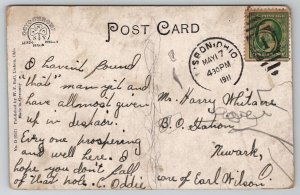 POST CARD
LISBON, OHIO
MAY 17
430 PM
1911
I haven't found
"that" man yet and
have allmost given
up in despair.
Evry one prospering
and well here. I
hope you don't fall
in that hole. C. Oddie
Mr. Harry Whitacre
B. O. Station
Newark,
O
care of Earl Wilson